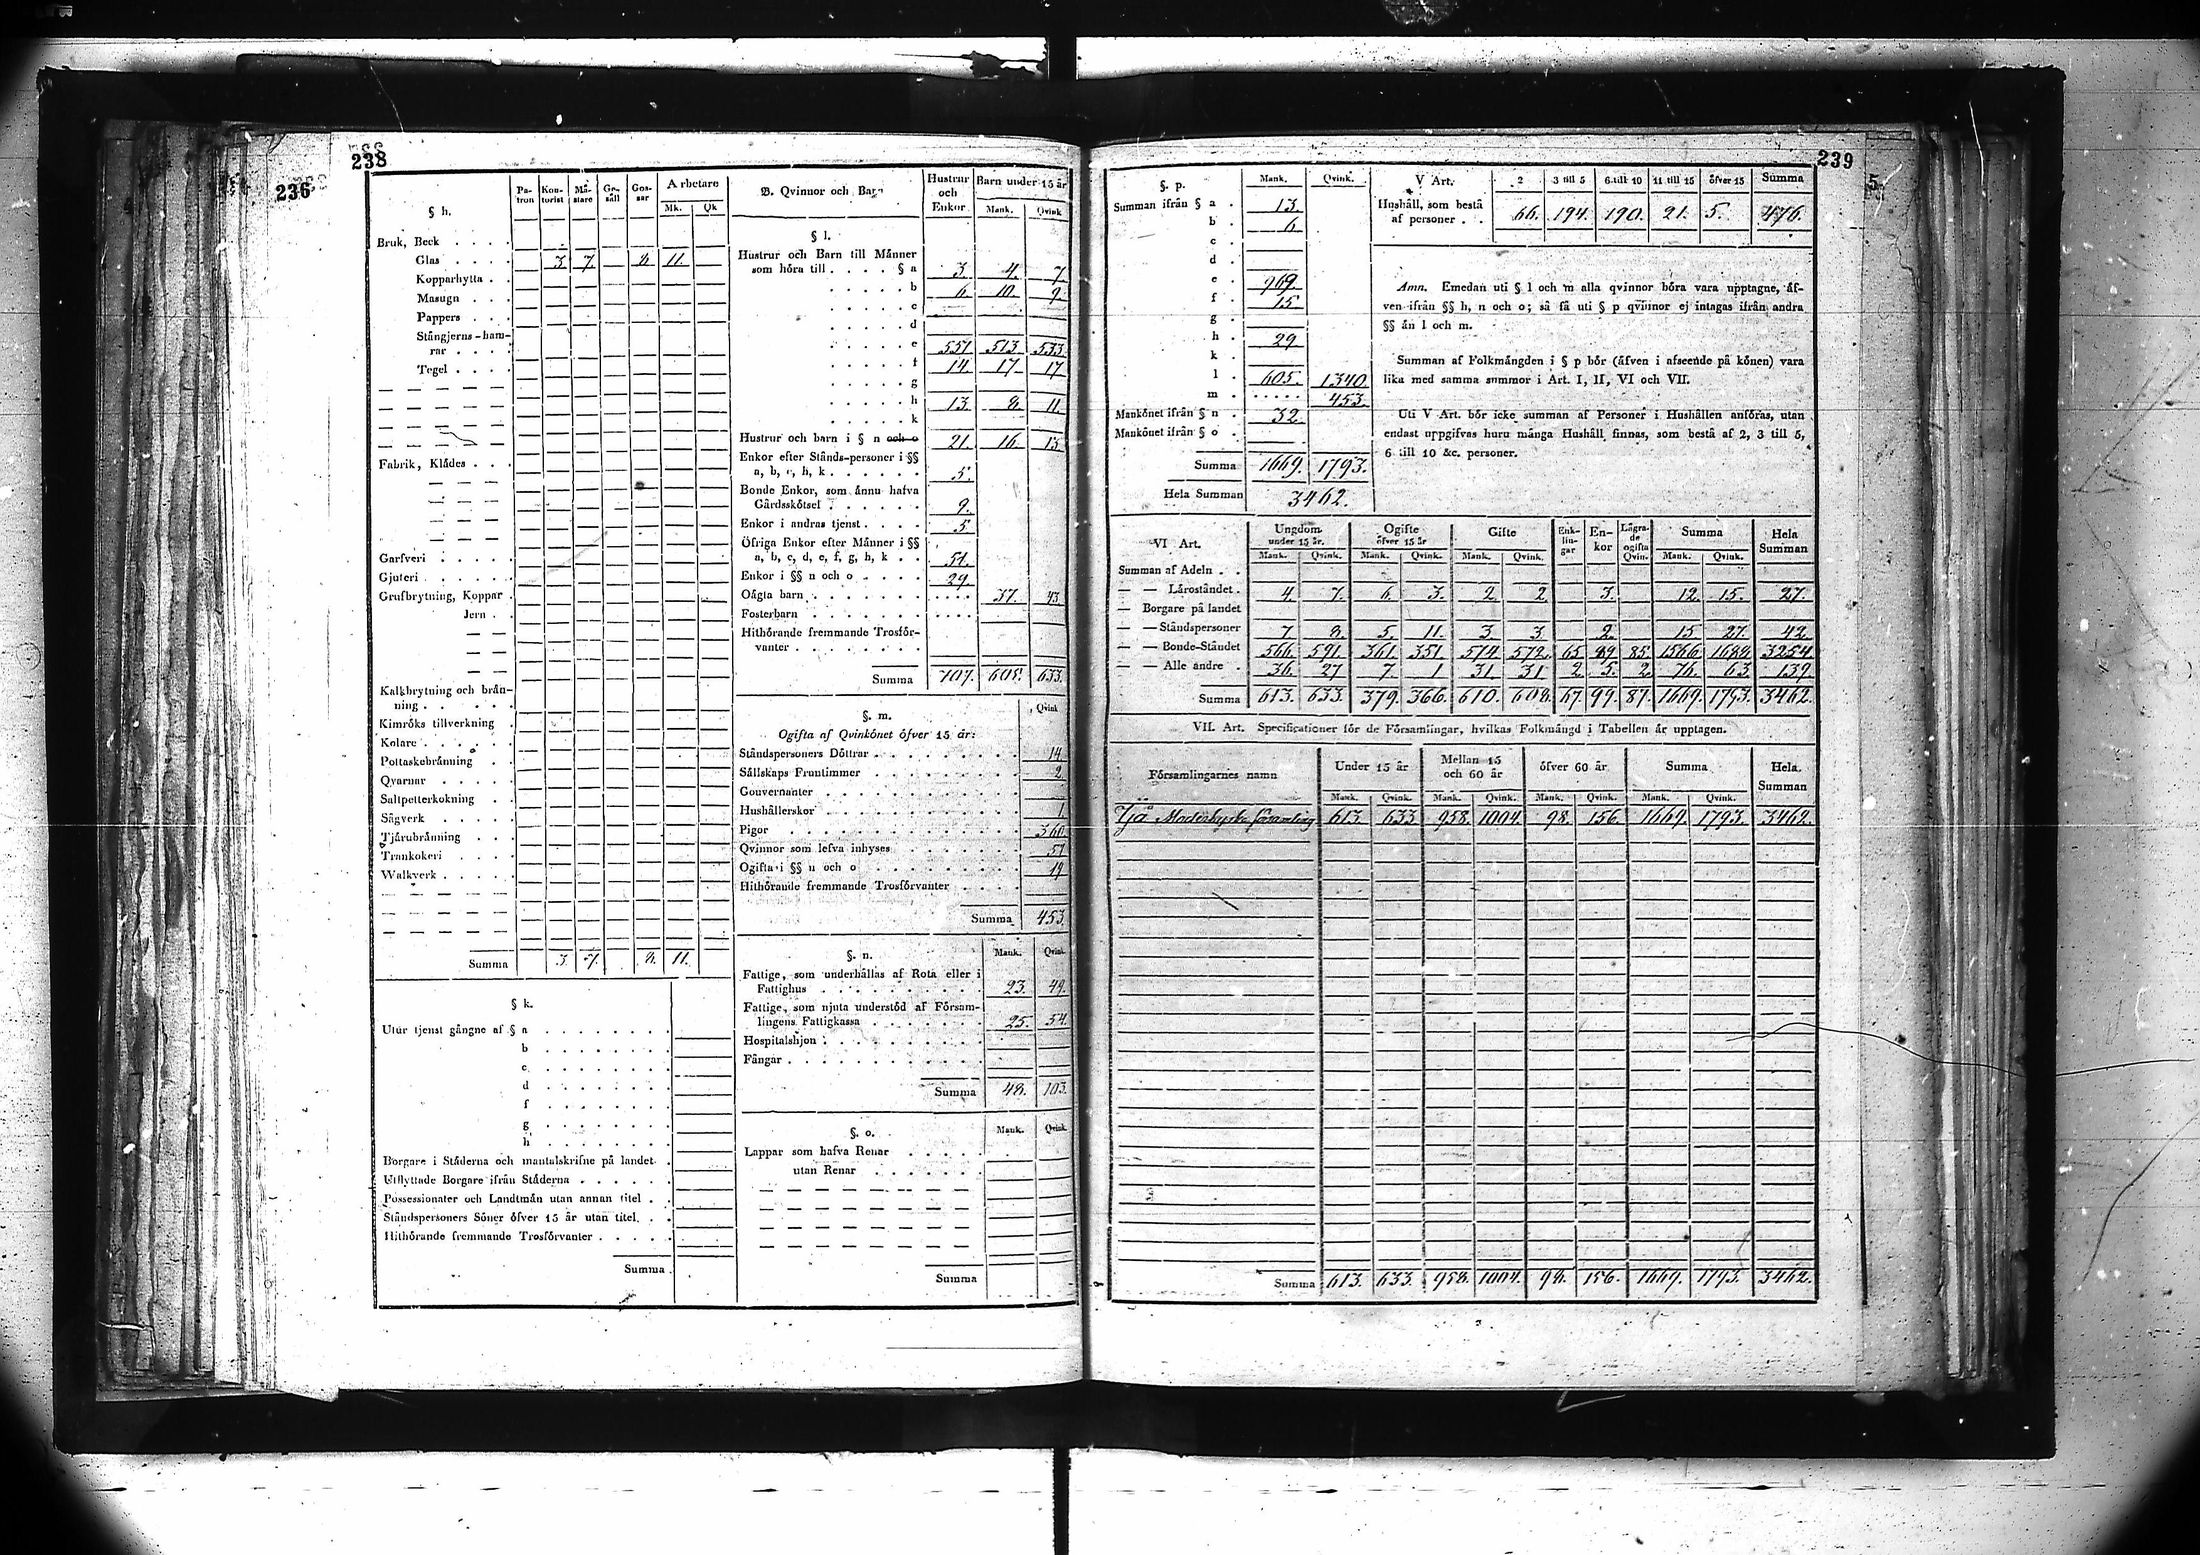 238
236
§ h.
Pa-tron Kon-torist Må-stare Ge-säll Gos-sar Arbetare
Mk. Qk
Bruk, Beck . . . .
Glas . . . . 3. 7. 8. 11.
Kopparhytta . .
Masugn . . .
Pappers . . .
Stångjerns-ham-
rar . . . .
Tegel . . . .
Fabrik, Klådes . . .
Garfveri . . . . .
Gjuteri . . . . .
Grufbrytning, Koppar .
Jern . .
Kalkbrytning och brån-
ning . . . . .
Kimröks tillverkning .
Kolare . . . . . .
Pottaskebrånning . .
Qvarnar . . . . .
Saltpetterkokning . .
Sågverk . . . . .
Tjårubrånning . . .
Trankokeri . . . .
Walkverk . . . . .
Summa 3. 7. 8. 11.
§ k.
Utur tjenst gångne af § a . . . . . . .
b . . . . . . .
c . . . . . . .
d . . . . . . .
f . . . . . . .
g . . . . . . .
h . . . . . . .
Borgare i Ståderna och mantalskrifne på landet .
Utflyttade Borgare ifrån Ståderna . . . . . .
Possessionater och Landtmån utan annan titel . .
Ståndspersoners Söner öfver 15 år utan titel. . .
Hithörande fremmande Trosförvanter . . . . .
Summa .
B. Qvinnor och Barn
Hustrur och Enkor Barn under 15 år
Mank. Qvink
§ l.
Hustrur och Barn till Månner
som höra till . . . . § a 3. 4. 7.
b 6. 10. 9.
c
d
e 551 513 533
f 14. 17. 17.
g
h 13. 8. 11.
k
Hustrur och barn i § n och o 21. 16. 13.
Enkor efter Stånds-personer i §§
a, b, c, h, k . . . . . . 5.
Bonde Enkor, som ånnu hafva
Gårdsskötsel . . . . . . 9.
Enkor i andras tjenst . . . . 5
Öfriga Enkor efter Månner i §§
a, b, c, d, e, f, g, h, k . . 51.
Enkor i §§ n och o . . . . 29.
Oågta barn . . . . . . . 37. 43.
Fosterbarn . . . . . . .
Hithörande fremmande Trosför-
vanter . . . . . . . .
Summa 707. 605. 633.
§. m. Qvink
Ogifta af Qvinkönet öfver 15 år:
Ståndspersoners Döttrar . . . . . . . 14.
Sållskaps Fruntimmer . . . . . . . . 2.
Gouvernanter . . . . . . . . . .
Hushållerskor . . . . . . . . . . 1.
Pigor . . . . . . . . . . . . 360.
Qvinnor som lefva inhyses . . . . . . 57
Ogifta i §§ n och o . . . . . . . . 19
Hithörande fremmande Trosförvanter . . . .
Summa 453.
§. n. Mank. Qvink
Fattige, som underhållas af Rota eller i
Fattighus . . . . . . . . . 23. 49.
Fattige, som njuta understöd af Försam-
lingens Fattigkassa . . . . . . 25. 54.
Hospitalshjon . . . . . . . . .
Fångar . . . . . . . . . . .
Summa 48. 103.
§. o. Mank. Qvink
Lappar som hafva Renar . . . . .
utan Renar . . . . . .
Summa
239
§. p. Mank. Qvink.
Summan ifrån § a . 13.
b . 6
c .
d .
e . 969.
f . 15.
g .
h . 29.
k .
l . 605. 1340.
m . . . . . . 453.
Mankönet ifrån § n . 32.
Mankönet ifrån § o .
Summa 1669. 1793.
Hela Summan 3462.
V Art. 2 3 till 5 6 till 10 11 till 15 öfver 15 Summa
Hushåll, som bestå
af personer . . 66. 194. 190. 21. 5. 476.
Anm. Emedan uti § l och m alla qvinnor böra vara upptagne, åf-
ven ifrån §§ h, n och o; så få uti § p qvinnor ej intagas ifrån andra
§§ ån l och m.
Summan af Folkmångden i § p bör (åfven i afseende på könen) vara
lika med samma summor i Art. I, II, VI och VII.
Uti V Art. bör icke summan af Personer i Hushållen anföras, utan
endast uppgifvas huru många Hushåll finnas, som bestå af 2, 3 till 5,
6 till 10 &c. personer.
VI Art. Ungdom under 15 år. Ogifte öfver 15 år Gifte Enk-lin-gar En-kor Lågra-de ogifta Qvin. Summa Hela Summan
Mank. Qvink. Mank. Qvink. Mank. Qvink. Mank. Qvink.
Summan af Adeln . .
— — Låroståndet . 4. 7. 6. 3. 2. 2. 3. 12. 15. 27.
— Borgare på landet
— — Ståndspersoner 7 8. 5. 11. 3. 3. 2. 15 27. 42.
— — Bonde-Ståndet 566. 591. 361. 351 574. 572. 65. 89. 85. 1566. 1688. 3254.
— — Alle andre . 36. 27 7. 1 31. 31 2. 5. 2. 76. 63. 139.
Summa 613. 633. 379. 366. 610. 608. 67. 99. 87. 1669. 1793. 3462.
VII. Art. Specificationer för de Församlingar, hvilkas Folkmångd i Tabellen år upptagen.
Församlingarnes namn Under 15 år Mellan 15 och 60 år öfver 60 år Summa Hela Summan
Mank. Qvink. Mank. Qvink. Mank. Qvink. Mank. Qvink.
Moderkyrko församling 613. 633 958. 1004. 98. 156. 1669. 1793. 3462.
Summa 613. 633. 958. 1004. 98. 156. 1669. 1793. 3462.